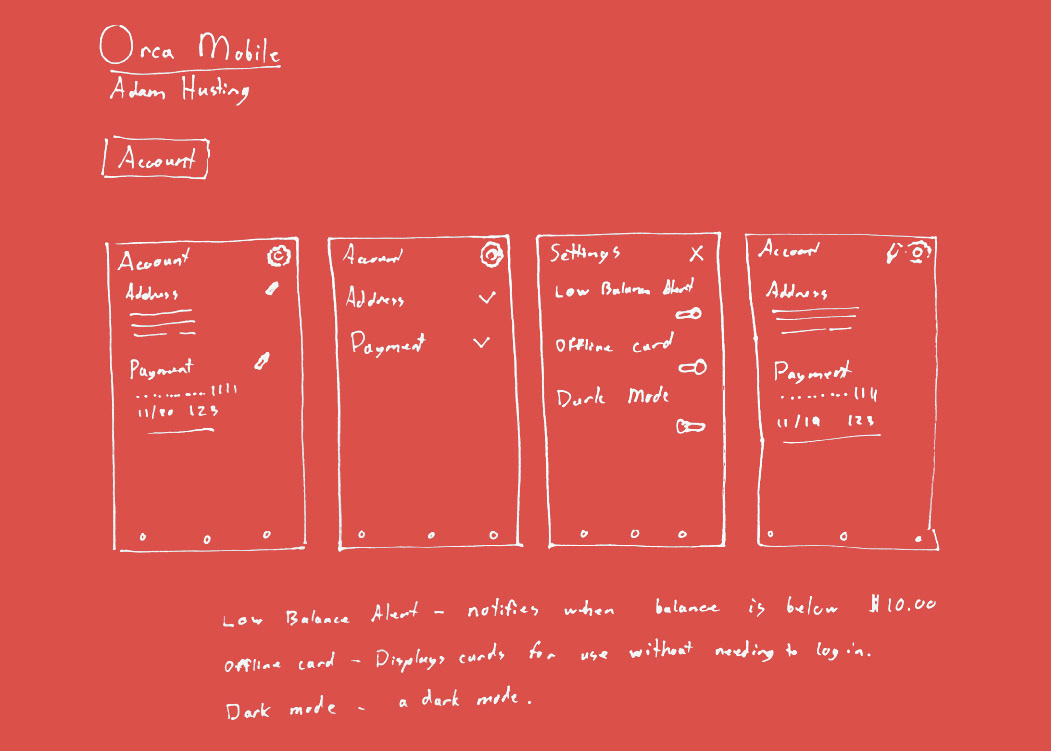 Orca Mobile
Adam Husting
Account
Account
Address
Payment
.........1111
11/20 123
Account
Address
Payment
Settings X
Low Balance Alert
Offline card
Dark Mode
Account
Address
Payment
.........1111
11/19 123
Low Balance Alert - notifies when balance is below $10.00
Offline card - Displays cards for use without needing to log in.
Dark mode - a dark mode.